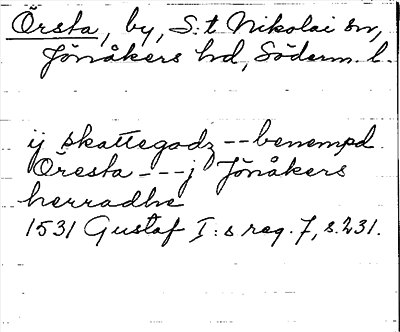 Örsta, by, S:t Nikolai sn,
Jönåkers hd, Söderm. l.
ij skattegodz -- benempd
Öresta --- j Jönåkers
herradhe
1531 Gustaf I:s reg. 7, s. 231.